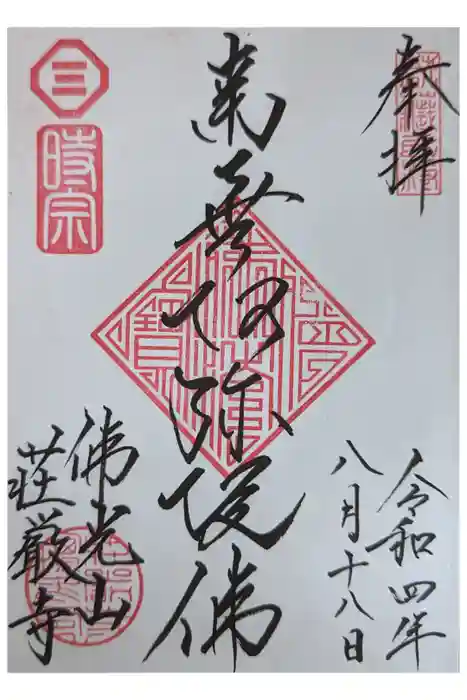 奉拝
令和四年
八月十八日
南無阿弥陀佛
三
時宗
佛光山
荘厳寺